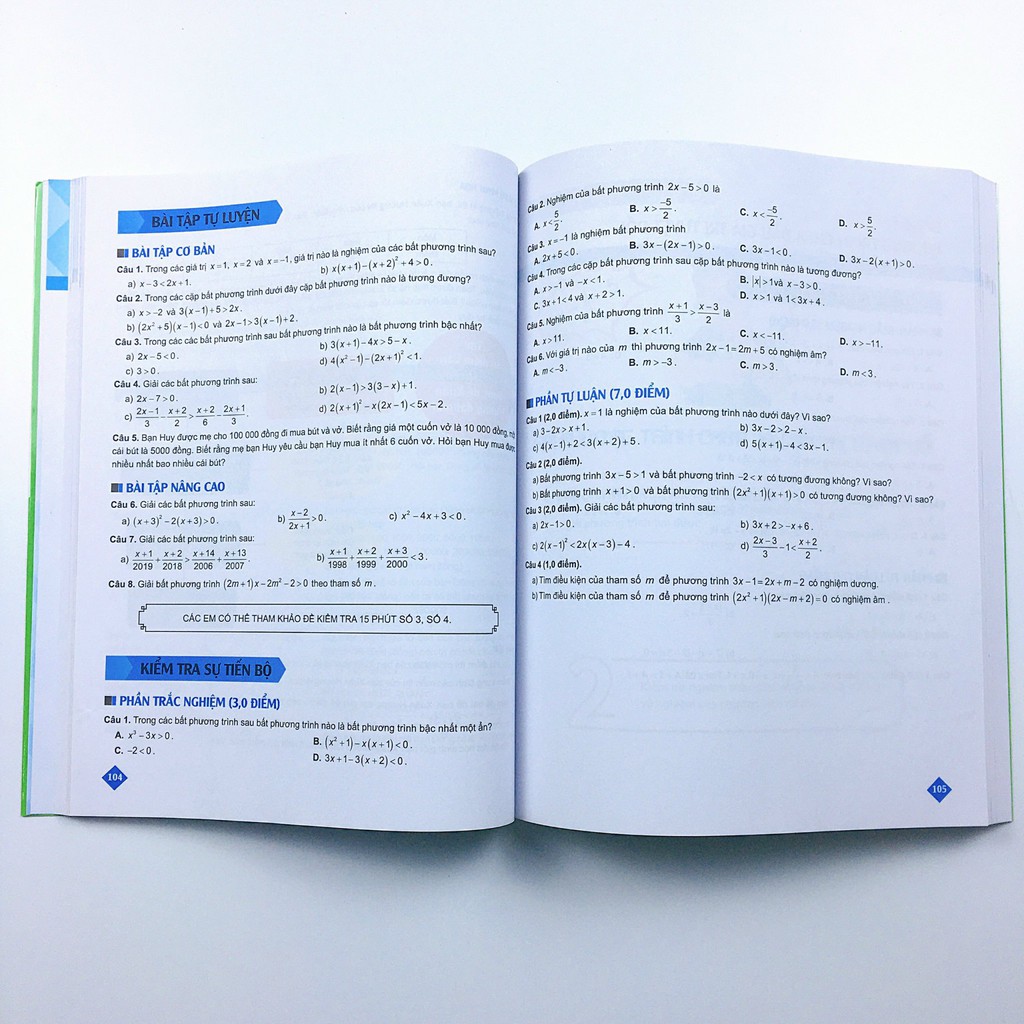 BÀI TẬP TỰ LUYỆN
BÀI TẬP CƠ BẢN
Câu 1. Trong các giá trị x=1, x=2 và x=−1, giá trị nào là nghiệm của các bất phương trình sau?
a) x−3<2x+1. b) x(x+1)−(x+2)²+4>0.
Câu 2. Trong các cặp bất phương trình dưới đây cặp bất phương trình nào là tương đương?
a) x>−2 và 3(x−1)+5>2x.
b) (2x²+5)(x−1)<0 và 2x−1>3(x−1)+2.
Câu 3. Trong các các bất phương trình sau bất phương trình nào là bất phương trình bậc nhất?
a) 2x−5<0. b) 3(x+1)−4x>5−x.
c) 3>0. d) 4(x²−1)−(2x+1)²<1.
Câu 4. Giải các bất phương trình sau:
a) 2x−7>0. b) 2(x−1)>3(3−x)+1.
c) (2x−1)/3 − (x+2)/2 > (x+2)/6 − (2x+1)/3. d) 2(x+1)²−x(2x−1)<5x−2.
Câu 5. Bạn Huy được mẹ cho 100 000 đồng đi mua bút và vở. Biết rằng giá một cuốn vở là 10 000 đồng,
cái bút là 5000 đồng. Biết rằng mẹ bạn Huy yêu cầu bạn Huy mua ít nhất 6 cuốn vở. Hỏi bạn Huy mua được
nhiều nhất bao nhiêu cái bút?
BÀI TẬP NÂNG CAO
Câu 6. Giải các bất phương trình sau:
a) (x+3)²−2(x+3)>0. b) (x−2)/(2x+1)>0. c) x²−4x+3<0.
Câu 7. Giải các bất phương trình sau:
a) (x+1)/2019 + (x+2)/2018 > (x+14)/2006 + (x+13)/2007. b) (x+1)/1998 + (x+2)/1999 + (x+3)/2000 < 3.
Câu 8. Giải bất phương trình (2m+1)x−2m²−2>0 theo tham số m.
CÁC EM CÓ THỂ THAM KHẢO ĐỀ KIỂM TRA 15 PHÚT SỐ 3, SỐ 4.
KIỂM TRA SỰ TIẾN BỘ
PHẦN TRẮC NGHIỆM (3,0 ĐIỂM)
Câu 1. Trong các bất phương trình sau bất phương trình nào là bất phương trình bậc nhất một ẩn?
A. x³−3x>0. B. (x²+1)−x(x+1)<0.
C. −2<0. D. 3x+1−3(x+2)<0.
104
Câu 2. Nghiệm của bất phương trình 2x−5>0 là
A. x<5/2. B. x>−5/2. C. x<−5/2. D. x>5/2.
Câu 3. x=−1 là nghiệm bất phương trình
A. 2x+5<0. B. 3x−(2x−1)>0. C. 3x−1<0. D. 3x−2(x+1)>0.
Câu 4. Trong các cặp bất phương trình sau cặp bất phương trình nào là tương đương?
A. x>−1 và −x<1. B. |x|>1 và x−3>0.
C. 3x+1<4 và x+2>1. D. x>1 và 1<3x+4.
Câu 5. Nghiệm của bất phương trình (x+1)/3 > (x−3)/2 là
A. x>11. B. x<11. C. x<−11. D. x>−11.
Câu 6. Với giá trị nào của m thì phương trình 2x−1=2m+5 có nghiệm âm?
A. m<−3. B. m>−3. C. m>3. D. m<3.
PHẦN TỰ LUẬN (7,0 ĐIỂM)
Câu 1 (2,0 điểm). x=1 là nghiệm của bất phương trình nào dưới đây? Vì sao?
a) 3−2x>x+1. b) 3x−2>2−x.
c) 4(x−1)+2<3(x+2)+5. d) 5(x+1)−4<3x−1.
Câu 2 (2,0 điểm).
a) Bất phương trình 3x−5>1 và bất phương trình −2<x có tương đương không? Vì sao?
b) Bất phương trình x+1>0 và bất phương trình (2x²+1)(x+1)>0 có tương đương không? Vì sao?
Câu 3 (2,0 điểm). Giải các bất phương trình sau:
a) 2x−1>0. b) 3x+2>−x+6.
c) 2(x−1)²<2x(x−3)−4. d) (2x−3)/3 −1< (x+2)/2.
Câu 4 (1,0 điểm).
a) Tìm điều kiện của tham số m để phương trình 3x−1=2x+m−2 có nghiệm dương.
b) Tìm điều kiện của tham số m để phương trình (2x²+1)(2x−m+2)=0 có nghiệm âm.
105